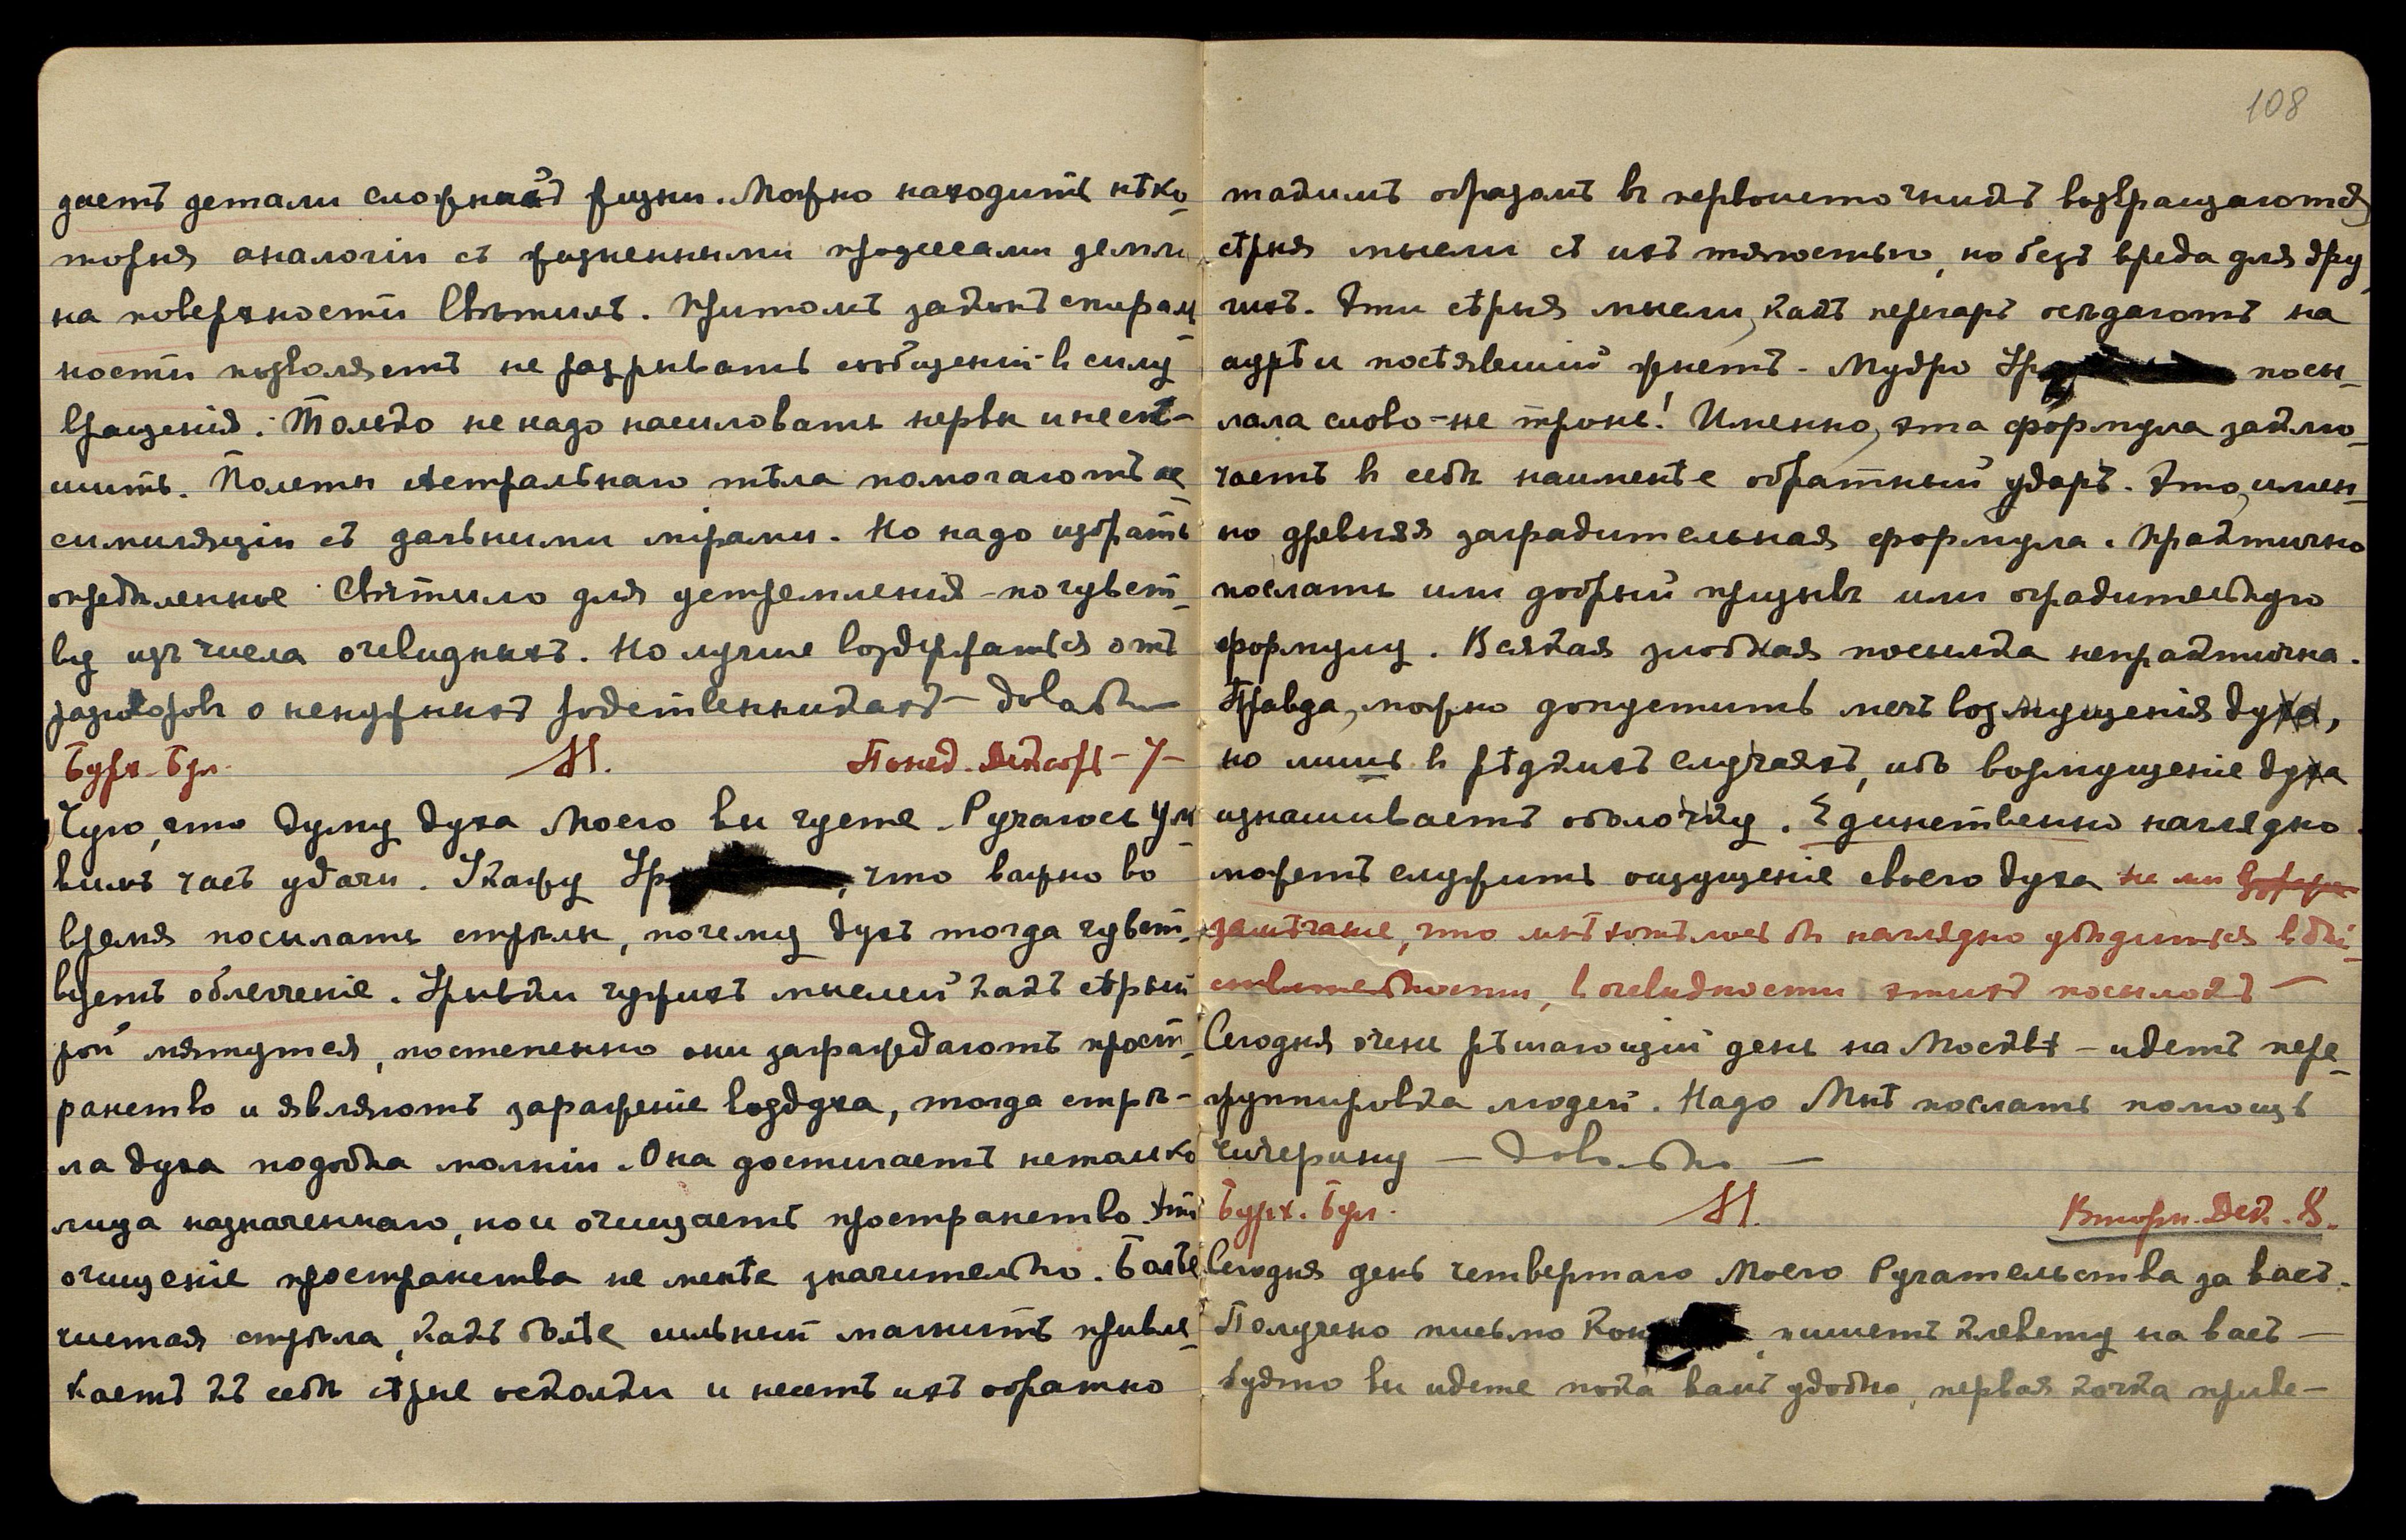 даетъ детали сложнаго жизни. Можно находить нѣко-
торыя аналогіи съ жизненными процессами земли
на поверхности Свѣтилъ. Притомъ законъ спираль-
ности позволяетъ не разрывать сообщеній въ силу
вращенія. Только не надо насиловать нервы и не спѣ-
шить. Полеты Астральнаго тѣла помогаютъ ас-
симиляціи съ дальними мірами. Но надо избрать
опредѣленное Свѣтило для устремленія – по чувст-
ву изъ числа очевидныхъ. Но лучше воздержаться отъ
разговоровъ о ненужныхъ родственникахъ – довольно
Бурх. Бул. М. Понед. Декабрь – 7 –
Чую, что думу духа Моего вы чуете. Ручаюсь уло-
вимъ часъ удачи. Скажу Ур , что важно во
время посылать стрѣлы, почему духъ тогда чувст-
вуетъ облегченіе. Урывки чужихъ мыслей какъ сѣрый
рой мятутся, постепенно они заграждаютъ прост-
ранство и являютъ зараженіе воздуха, тогда стрѣ-
ла духа подобна молніи. Она достигаетъ не только
лица назначеннаго, но и очищаетъ пространство. Это
очищеніе пространства не менѣе значительно. Болѣе
чистая стрѣла, какъ болѣе сильный магнитъ привле-
каетъ къ себѣ сѣрые осколки и несетъ ихъ обратно
108
такимъ образомъ въ первоисточникъ возвращаются
сѣрыя мысли съ ихъ тягостью, но безъ вреда для дру
гихъ. Эти сѣрыя мысли, какъ перегаръ осѣдаютъ на
аурѣ и посѣявшій жнетъ – Мудро Ур посы-
лала слово – не тронь! Именно, эта формула заклю-
чаетъ въ себѣ наименѣе обратный ударъ. Это, имен-
но древняя заградительная формула. Практично
послать или добрый призывъ или оградительную
формулу. Всякая злобная посылка непрактична.
Правда, можно допустить мечъ возмущенія духа,
но лишь въ рѣдкихъ случаяхъ, ибо возмущеніе духа
изнашиваетъ оболочку. Единственно наглядно
можетъ служить ощущеніе своего духа на мое
замѣчаніе, что мнѣ хотѣлось бы наглядно убѣдиться въ дѣй-
ствительности, въ очевидности этихъ посылокъ –
Сегодня очень рѣшающій день на Москвѣ – идетъ пере-
группировка людей. Надо Мнѣ послать помощь
Чичерину – довольно –
Бурх. Бул. М. Вторн. Дек. 8.
Сегодня день четвертаго Моего Ручательства за васъ.
Получено письмо Кон , пишетъ клевету на васъ –
будто вы идете пока вамъ удобно, первая кочка приве-